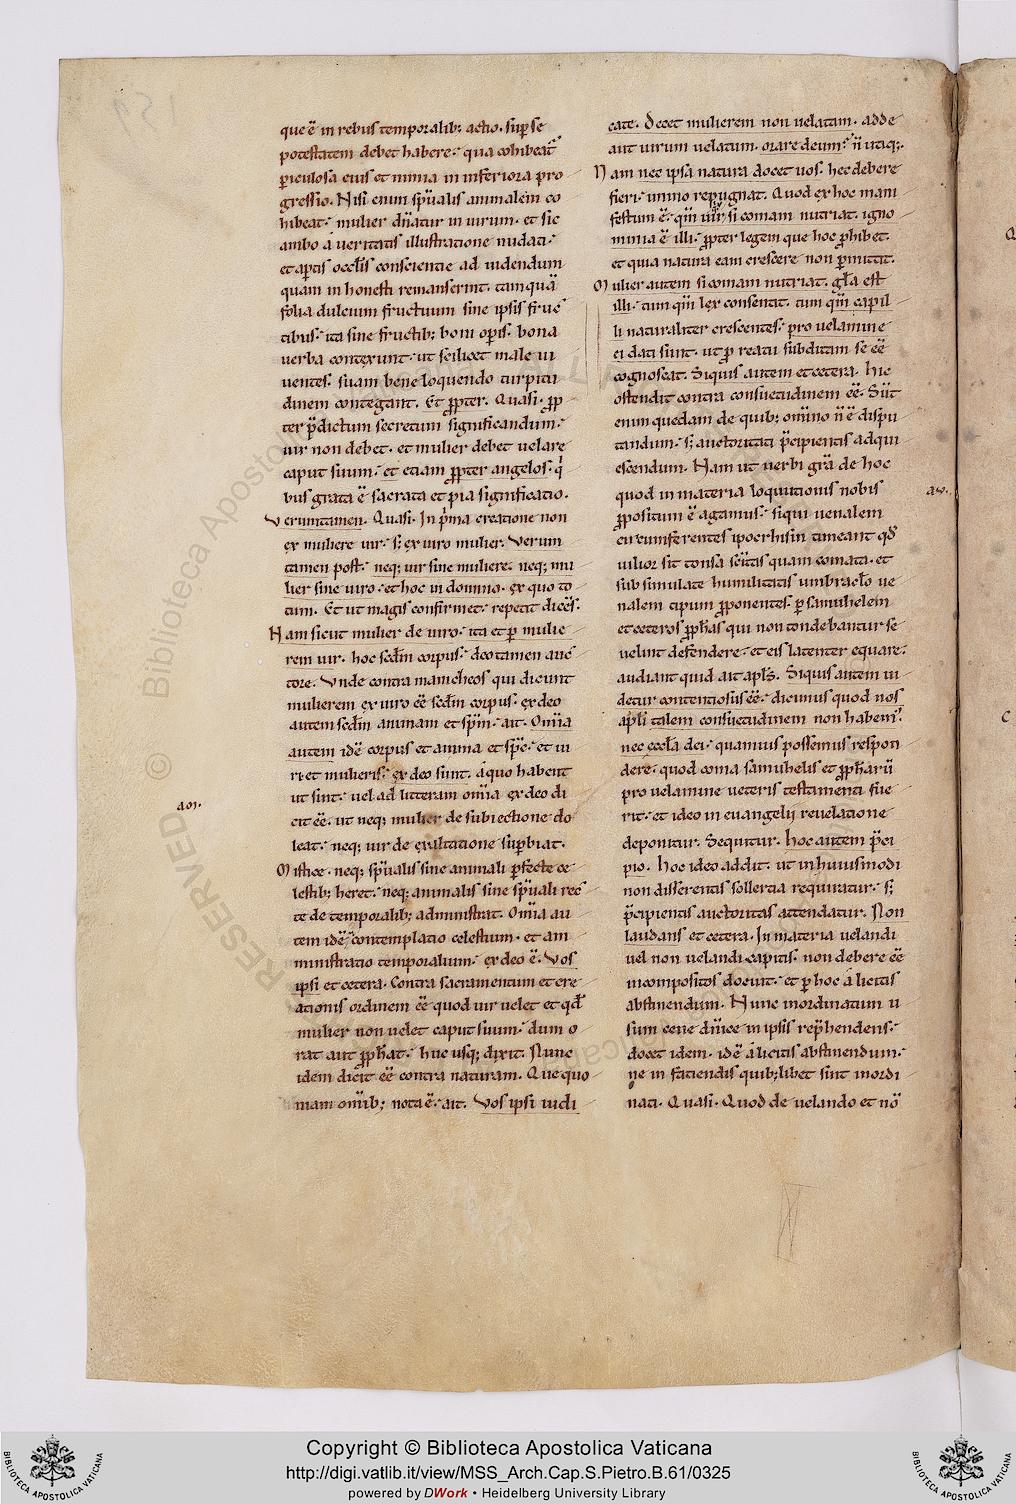 que ē in rebus temporalib; actio. sup se
potestatem debet habere. qua cohibeat
piculosa eius et nimia in inferiora pro
gressio. Nisi enim spualis animalem co
hibeat. mulier dnatur in uirum. et sic
ambo á ueritatis illustratione nudati.
et aptis occlis conscientie ad uidendum
quam in honesti remanserint. tamquā
folia dulcium fructuum sine ipsis fruc
tibus. ita sine fructib; boni opis. bona
uerba contexunt. ut scilicet male ui
uentes. suam bene loquendo turpitu
dinem contegant. Et ppter. Quasi. pp
ter pdictum secretum significandum.
uir non debet. et mulier debet uelare
caput suum. et etiam ppter angelos. q
bus grata ē sacrata et pia significatio.
Verumtamen. Quasi. In pma creatione non
ex muliere uir. s; ex uiro mulier. Verum
tamen post. neq; uir sine muliere. neq; mu
lier sine uiro. et hoc in domino. ex quo to
tum. Et ut magis confirmet. repetit dicēs.
Nam sicut mulier de uiro. ita et p mulie
rem uir. hoc scdm corpus. deo tamen auc
tore. Vnde contra manicheos qui dicunt
mulierem ex uiro eē scdm corpus. ex deo
autem scdm animam et spm. ait. Omia
autem idē corpus et anima et spc. et ui
ri et mulieris. ex deo sunt. áquo habent
ut sint. uel ad litteram omia ex deo di
cit eē. ut neq; mulier de subiectione do
leat. neq; uir de exaltatione supbiat.
Mistice. neq; spualis sine animali pfecte ce
lestib; heret. neq; animalis sine spuali rec
te de temporalib; administrat. Omia au
tem idē contemplatio celestium. et am
ministratio temporalium. ex deo ē. Vos
ipsi et cetera. Contra sacramentum et cre
ationis ordinem eē quod uir uelet et qd
mulier non uelet caput suum. dum o
rat aut pphat. huc usq; dixit. Nunc
idem dicit eē contra naturam. Que quo
niam omib; nota ē. ait. Vos ipsi iudi
aōr.
cate. Decet mulierem non uelatam. adde
aut uirum uelatum. orare deum. ñ utiq;.
Nam nec ipsa natura docet uos. hec debere
fieri. immo repugnat. Quod ex hoc mani
festum ē. qm uir si comam nutriat. igno
minia ē illi. ppter legem que hoc phibet.
et quia natura eam crescere non pmittit.
Mulier autem si comam nutriat. gla est
illi. tum qm lex consentit. tum qm capil
li naturaliter crescentes. pro uelamine
ei dati sunt. ut p reatu subditam se eē
cognoscat. Siquis autem et cetera. Hic
ostendit contra consuetudinem eē. Sūt
enim quedam de quib; omino ñ ē dispu
tandum. s; auctoritati pcipientis adqui
escendum. Nam ut uerbi gra de hoc
quod in materia loquutionis nobis
ppositum ē agamus. siqui uenalem
circumferentes ipocrhisin timeant qd
uilior sit tonsa scitas quam comata. et
sub simulate humilitatis umbraclo ue
nalem tipum pponentes. p samuhelem
et ceteros pphas qui non tondebantur se
uelint defendere. et eis latenter equare.
audiant quid ait apls. Siquis autem ui
detur contentiosus eē. dicimus quod nos
apli talem consuetudinem non habem.
nec eccla dei. quamuis possemus respon
dere. quod coma samuhelis et pphārū
pro uelamine ueteris testamenti fue
rit. et ideo in euangelij reuelatione
deponitur. Sequitur. hoc autem pci
pio. Hoc ideo addit. ut in huiusmodi
non disserentis sollertia requiratur. s;
pcipientis auctoritas attendatur. Non
laudans et cetera. In materia uelandi
uel non uelandi capitis. non debere eē
incompositos docuit. et p hoc á licitis
abstinendum. Hunc inordinatum u
sum cene dnice in ipsis rephendens.
docet idem. idē á licitis abstinendum.
ne in faciendis quib;libet sint inordi
nati. Quasi. Quod de uelando et nō
Copyright © Biblioteca Apostolica Vaticana
http://digi.vatlib.it/view/MSS_Arch.Cap.S.Pietro.B.61/0325
powered by DWork • Heidelberg University Library
BIBLIOTECA APOSTOLICA VATICANA
BIBLIOTECA APOSTOLICA VATICANA